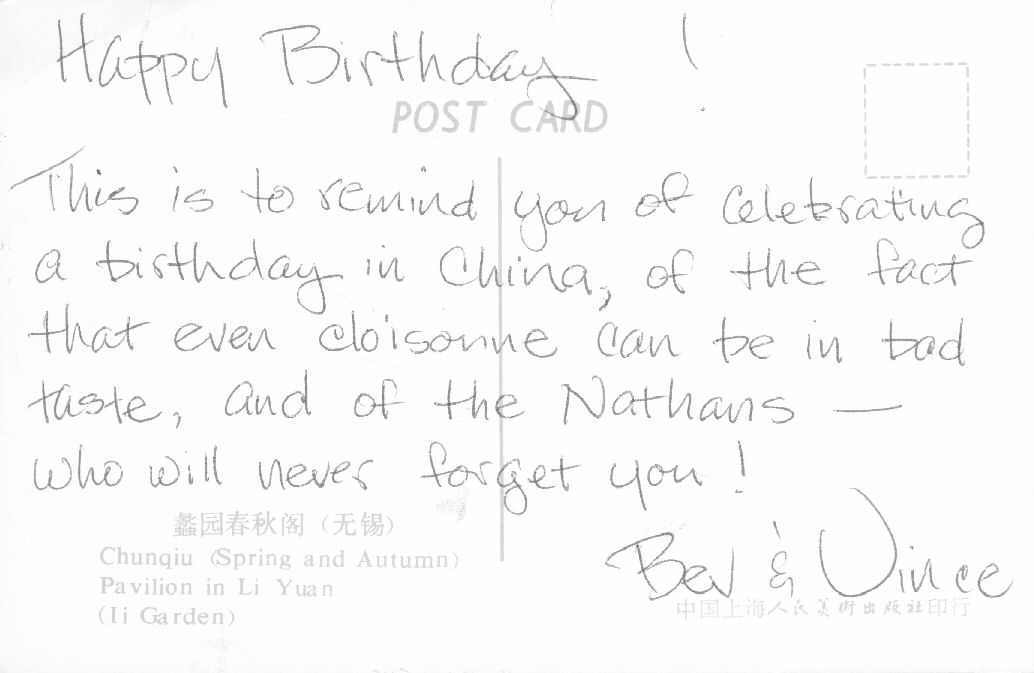 Happy Birthday !
POST CARD
This is to remind you of celebrating
a birthday in China, of the fact
that even cloisonne can be in bad
taste, and of the Nathans —
who will never forget you!
蠡园春秋阁（无锡）
Chunqiu (Spring and Autumn)
Pavilion in Li Yuan
(Ii Garden)
Bev & Vince
中国上海人民美術出版社印行